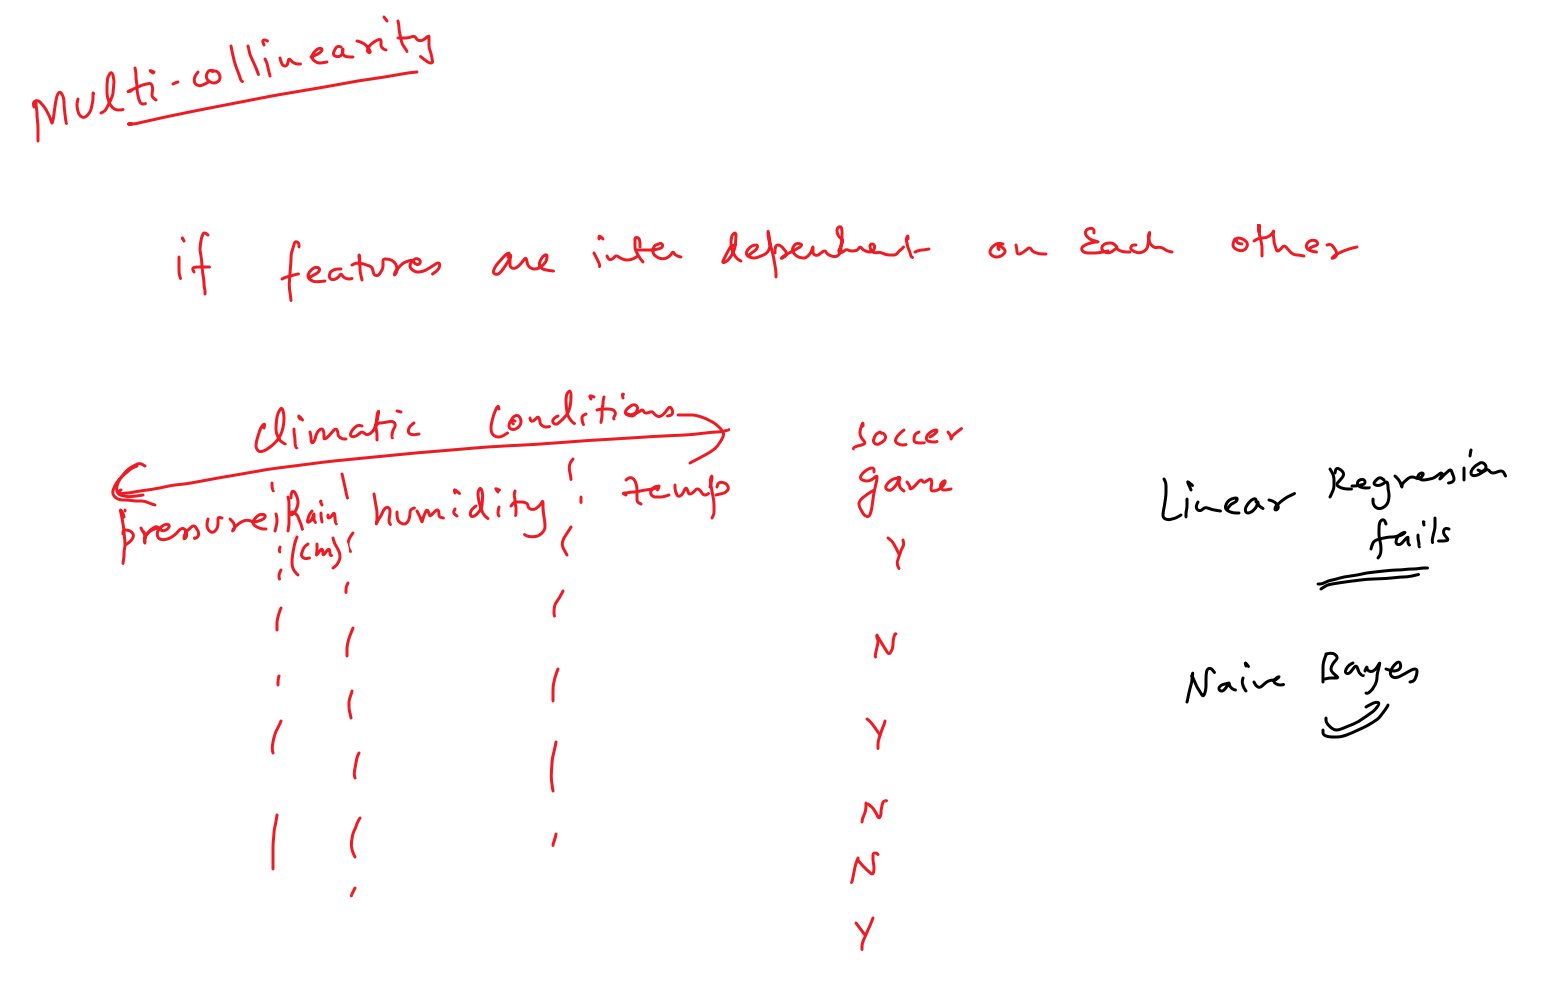 Multi-collinearity
if features are inter dependent on Each other
climatic conditions
pressure Rain (cm) humidity temp
soccer game
Y
N
Y
N
N
Y
Linear Regression
fails
Naive Bayes